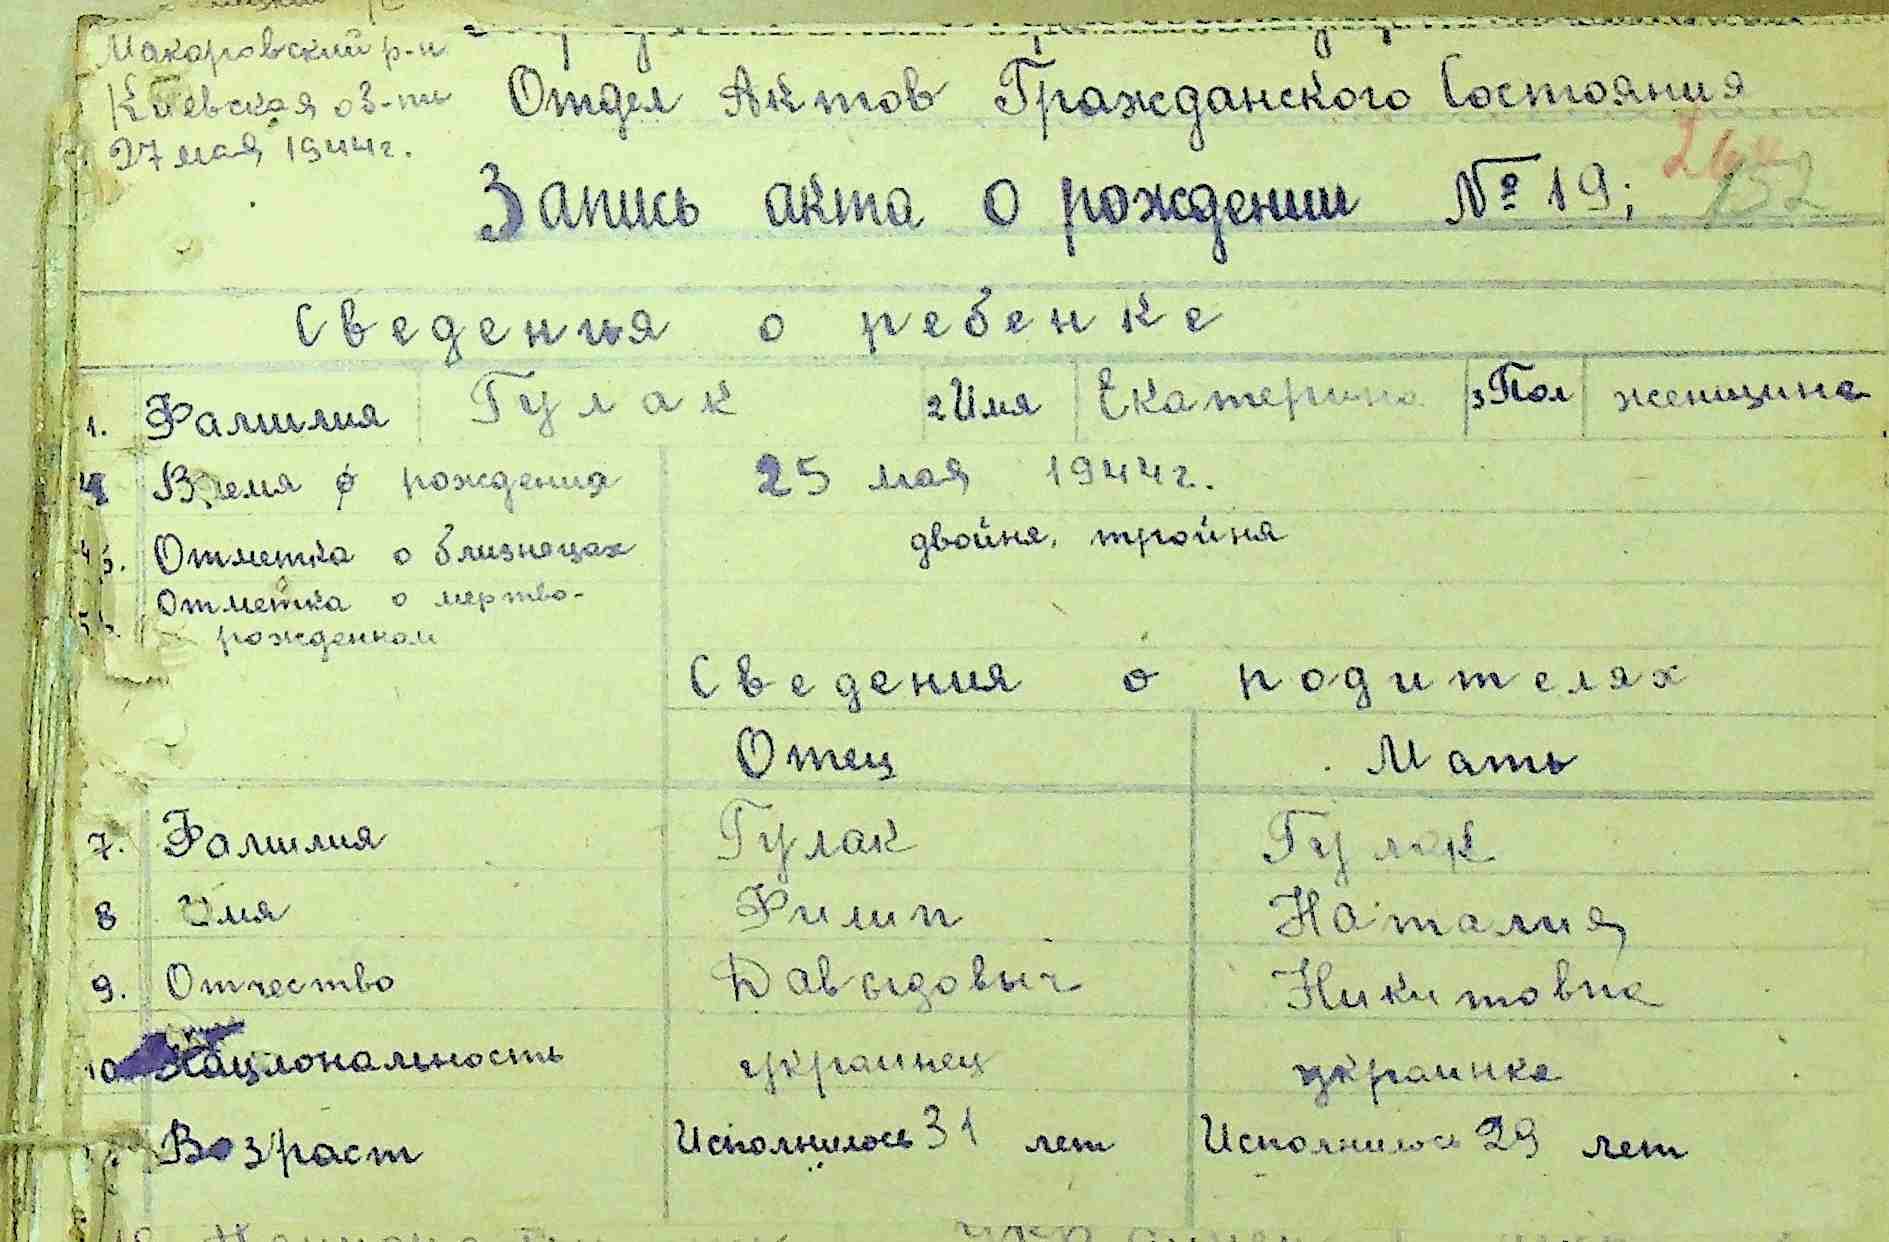 Макаровский р-н
Киевская обл-ти
27 мая 1944г.
Отдел Актов Гражданского Состояния
Запись акта о рождении № 19; 152
Сведения о ребенке
1. Фамилия Гулак 2 Имя Екатерина 3 Пол женщина
4 Время рождения 25 мая 1944г.
5. Отметка о близнецах двойня, тройня
Отметка о мертво-
рожденном
Сведения о родителях
Отец Мать
7. Фамилия Гулак Гулак
8 Имя Филип Наталия
9. Отчество Давыдовыч Никитовна
10 Национальность украинец украинка
Возраст Исполнилось 31 лет Исполнилось 29 лет